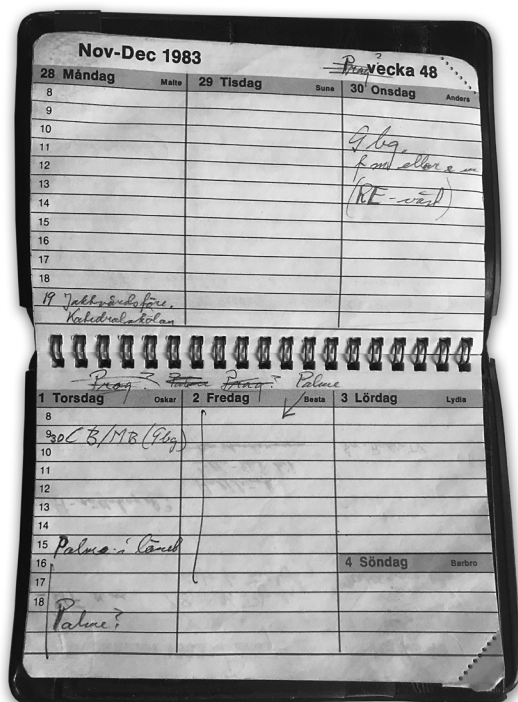 Nov-Dec 1983
Prag? vecka 48
28 Måndag Malte
29 Tisdag Sune
30 Onsdag Anders
8
9
10
11
12
13
14
15
16
17
18
Gbg,
fm eller em
(RE-väst)
19
Katedralskolan
Prag? Palme Prag? Palme
1 Torsdag Oskar
2 Fredag Beata
3 Lördag Lydia
8
930 CB/MB (Gbg)
10
11
12
13
14
15 Palme i länet
16
17
18
Palme?
4 Söndag Barbro